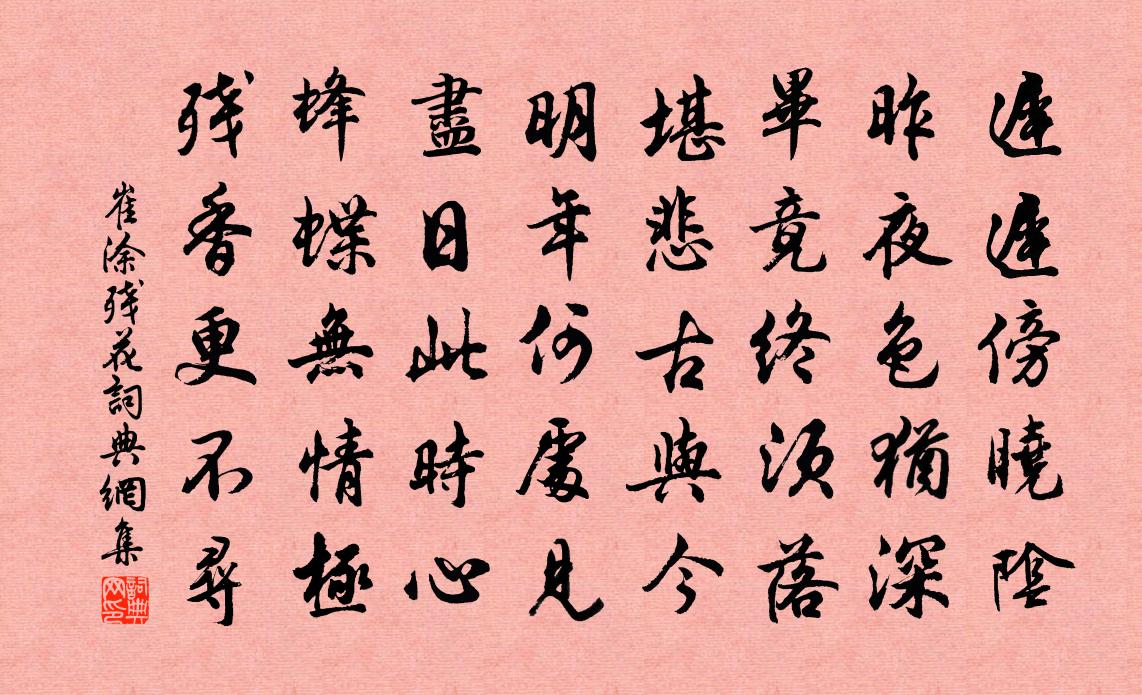 遲遲傍曉陰
昨夜色猶深
畢竟終須落
堪悲古與今
明年何處見
盡日此時心
蜂蝶無情極
残香更不尋
崔涂残花詞典網集
詞典网印